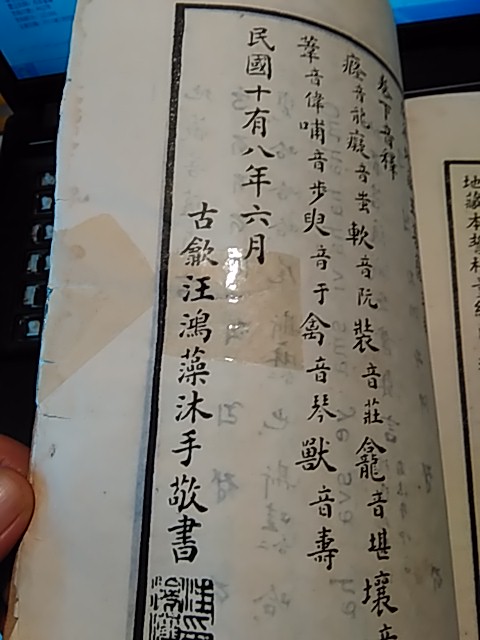 卷下音釋
癃音龍癡音蚩軟音阮裝音莊龕音堪壤音
葦音偉哺音步臾音于禽音琴獸音壽
民國十有八年六月
古歙汪鴻藻沐手敬書
地藏本